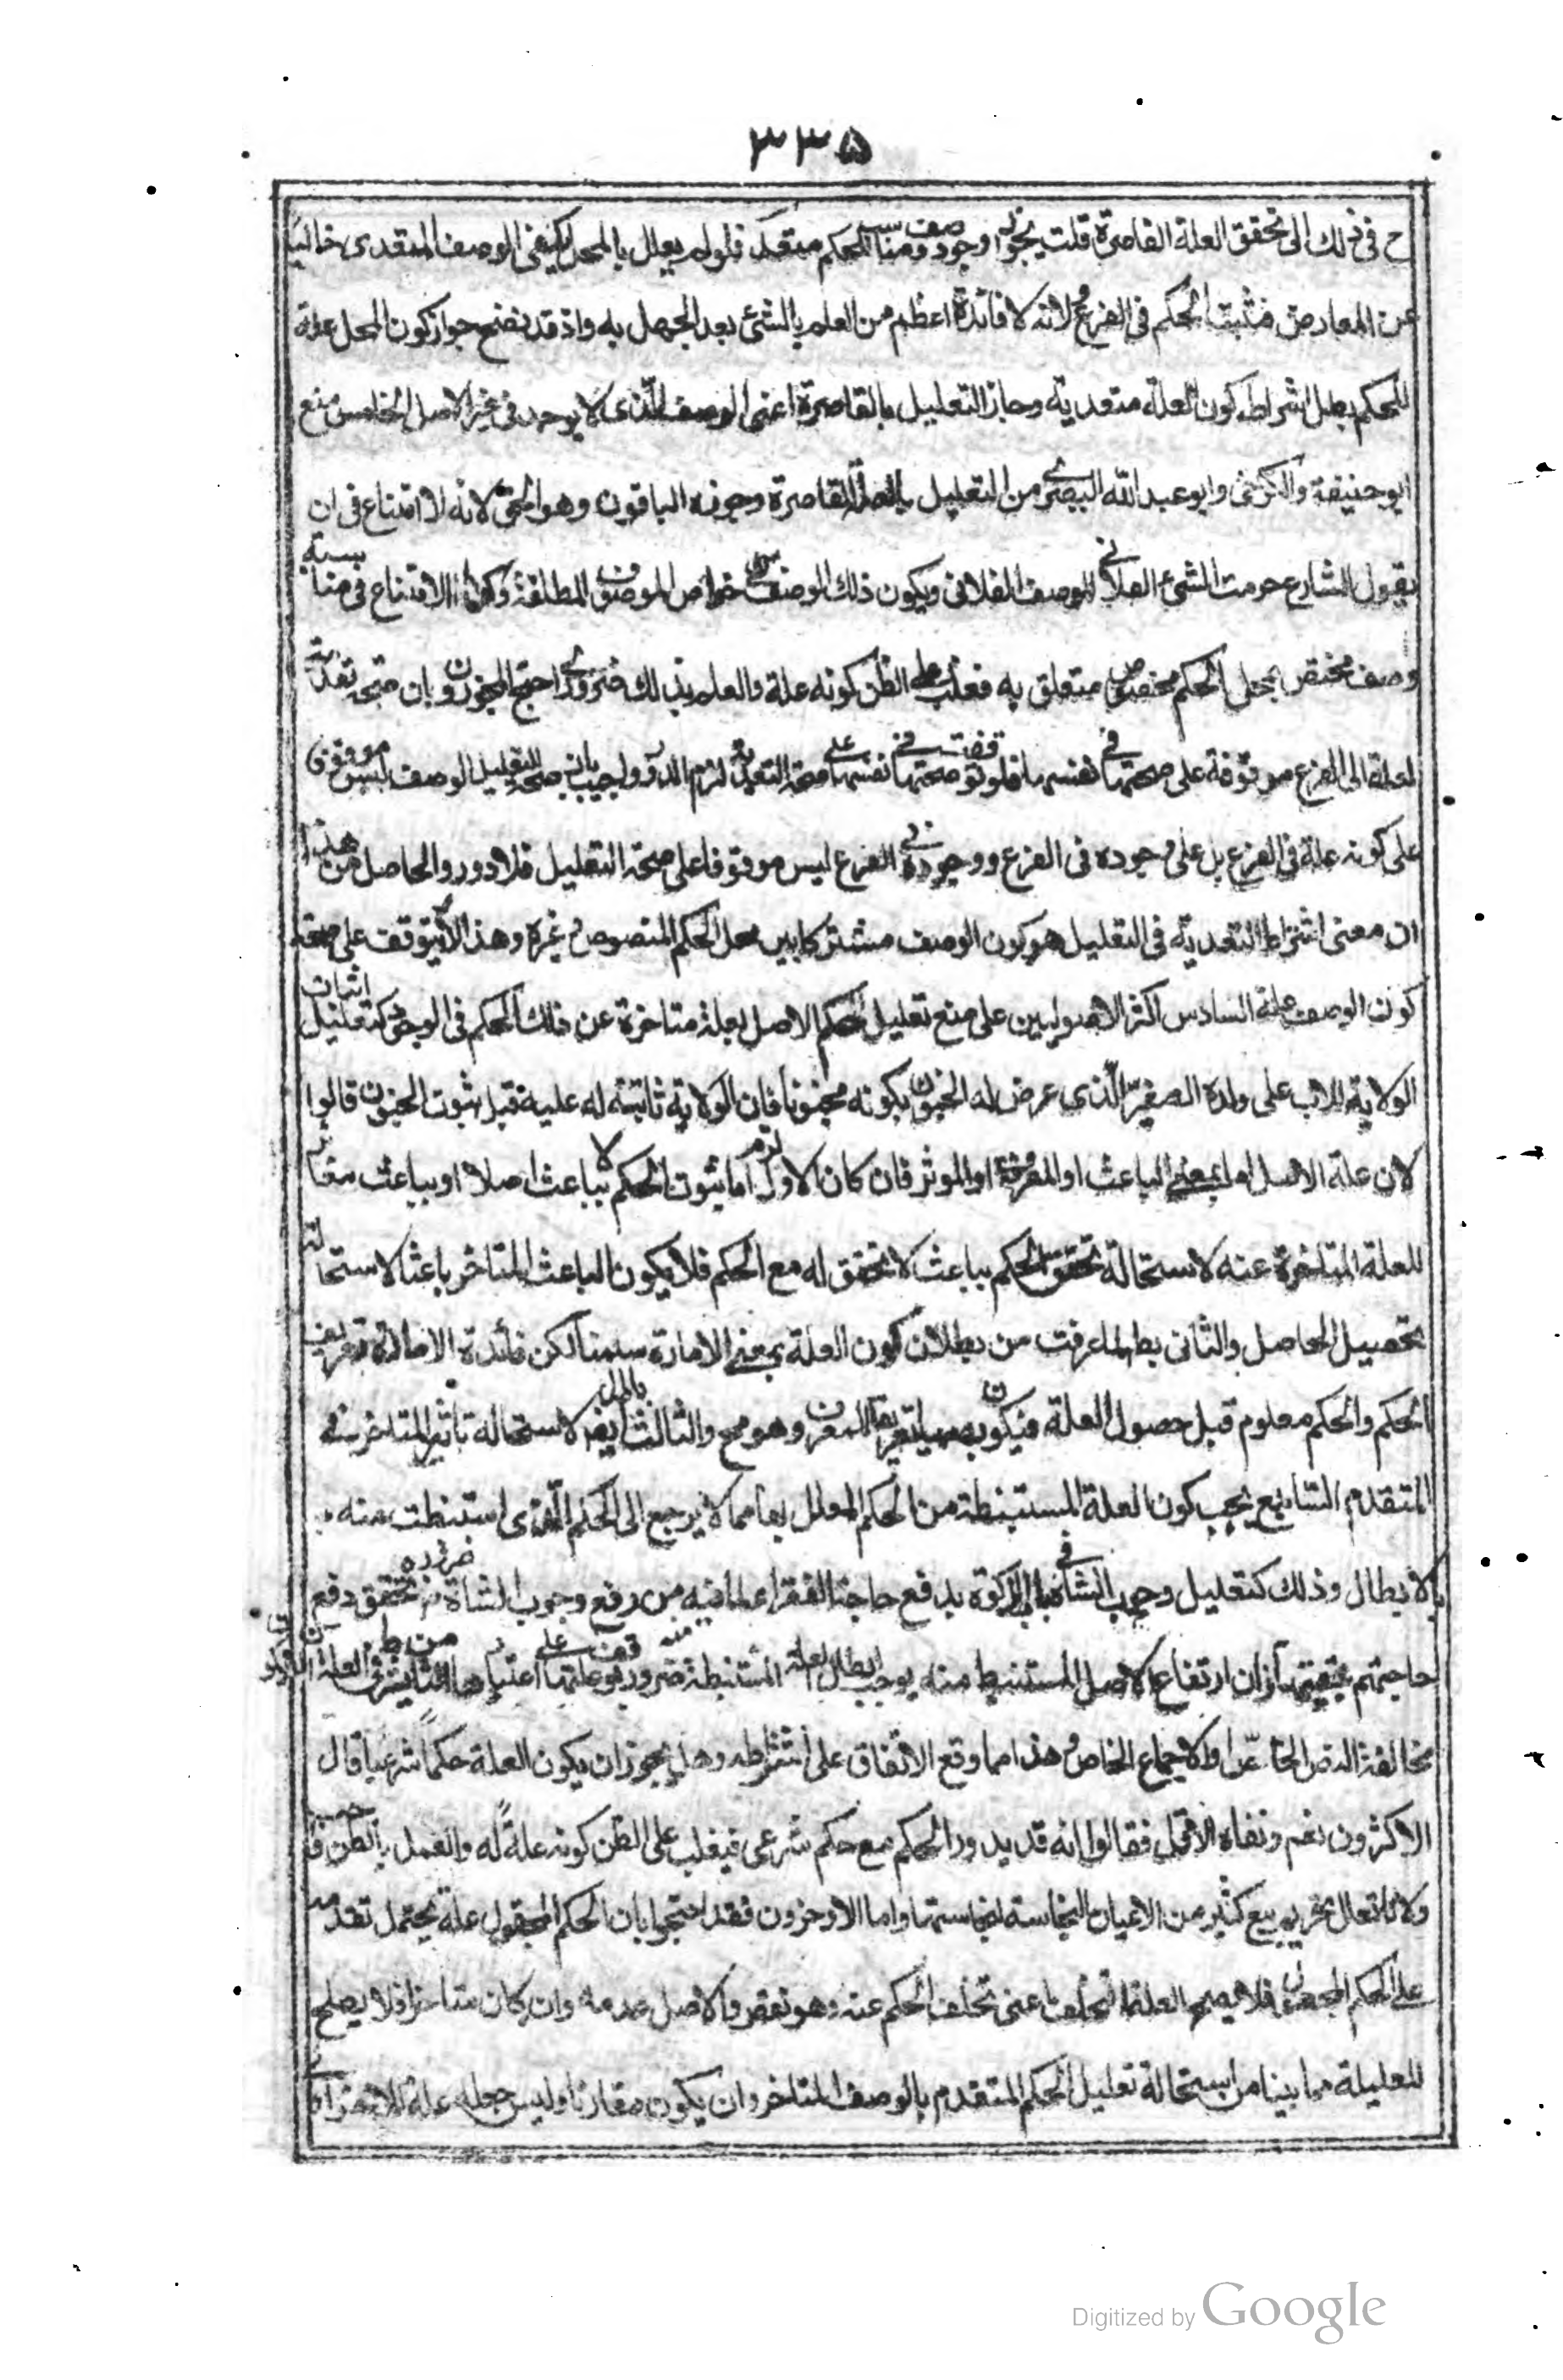 ٣٣۵
ح فى ذلك الى تحقق العلة القاصرة قلت يجوز وجود وصف مناسب للحكم متعد فلو لم يعلل بالمحل لكيفى الوصف المتعدى خاليا
عن المعارض فثبت الحكم فى الفرع ولانه لا فائدة اعظم من العلم بالشئ بعد الجهل به واذ قد يضح جواز كون المحل علة
للحكم بطل اشراط كون العلة متعدية وجاز التعليل بالقاصرة اعنى الوصف الذى لا يوجد فى غير الاصل الخامس منع
ابو حنيفة والكرخى وابو عبد الله البصرى من التعليل بالعلة القاصرة وجوزه الباقون وهو الحق لانه لا امتناع فى ان
يقول الشارع حرمت الشئ الفلانى للوصف الفلانى ويكون ذلك الوصف من خواص الموصوف المطلقة وكذا لا امتناع فى مناسبته
وصف مختص بمحل الحكم متعلق به فغلب على الظن كونه علة والعلم بذلك ضرورى احتج المجوزون بان صحة تعدية
لعلة الى الفرع موقوفة على صحتها فى نفسها فلو توقفت صحتها فى نفسها على صحة التعدية لزم الدور واجيب بان صحة التعليل الوصف ليس موقوفة
على كونه علة فى الفرع بل على وجوده فى الفرع ووجوده فى الفرع ليس موقوفا على صحة التعليل فلا دور والحاصل من هذا
ان معنى اشتراط التعدية فى التعليل هو كون الوصف مشتركا بين محل الحكم المنصوص وغيره وهذا لا يتوقف على صحة
كون الوصف علة السادس اكثر الاصوليين على منع تعليل حكم الاصل بعلة متاخرة عن ذلك الحكم فى الوجود كتعليل اثبات
الولاية للاب على ولده الصغير الذى عرض له الجنون بكونه مجنونا فان الولاية ثابتة له عليه قبل ثبوت الجنون قالوا
لان علة الاصل اما بمعنى الباعث او المعرف او الموثر فان كان الاول لزم اما ثبوت الحكم لا بباعث اصلا او بباعث مغاير
للعلة المتاخرة عنه لاستحالة تحقق الحكم بباعث لا تحقق له مع الحكم فلا يكون الباعث المتاخر باعثا لاستحالة
تحصيل الحاصل والثانى بط لما عرفت من بطلان كون العلة بمعنى الامارة سلمنا لكن فائدة الامارة تعريف
الحكم والحكم معلوم قبل حصول العلة فيكون تعريفا للمعرف وهو مح والثالث ايضا باطل لاستحالة تاثير المتاخر فى
المتقدم السابع يجب كون العلة المستنبطة من الحكم المعلل بها مما لا يرجع الى الحكم الذى استنبطت منه
بالابطال وذلك كتعليل وجوب الشاة فى باب الزكوة بدفع حاجة الفقراء لما فيه من رفع وجوب الشاة ضرورة تحقق دفع
حاجتهم بقيمتها اذ ان ارتفاع الاصل المستنبط منه يوجب ابطال العلة المستنبطة منه ضرورة توقف عليتها على اعتبارها الثامن يشترط فى العلة ان لا يكون
مخالفة النص الخاص او الاجماع الخاص وهذا مما وقع الاتفاق على اشتراطه وهل يجوز ان يكون العلة حكما شرعيا قال
الاكثرون نعم ونفاه الاقل فقالوا انه قد يدور الحكم مع حكم شرعى فيغلب على الظن كونه علة له والعمل بالظن واجب
ولانا نعلل تحريم بيع كثير من الاعيان النجاسة لنجاستها واما الاخرون فقد احتجوا بان الحكم المجعول علة يحتمل تقدمه
على الحكم المعلل فلا يصح للعلة لتخلف اعنى تخلف الحكم عنه وهو نقض والاصل عدمه وان كان متاخرا فلا يصلح
للعليلة مما بينا من استحالة تعليل الحكم المتقدم بالوصف المتاخر وان يكون مقارنا وليس جعله علة للاخر اولى
Digitized by Google